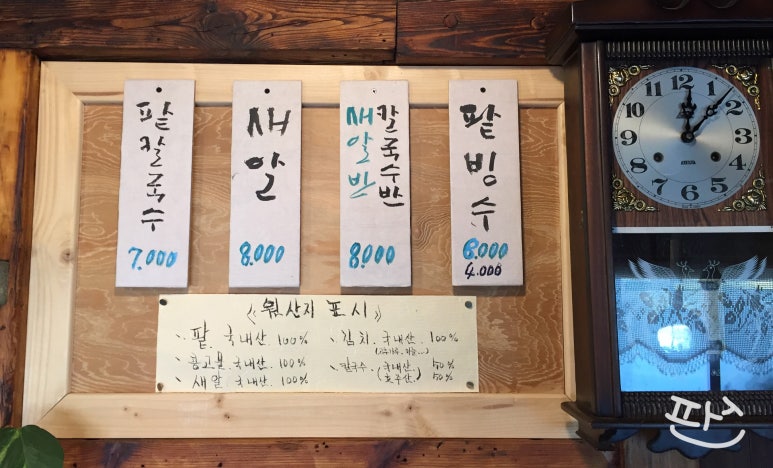 팥칼국수
7.000
새알
8.000
새알반
칼국수반
8.000
팥빙수
6.000
4.000
《원산지 표시》
팥. 국내산. 100%
콩고물. 국내산. 100%
새알. 국내산. 100%
김치. 국내산. 100%
칼국수. (국내산. 50%
호주산.) 50%
12 1 2 3 4 5 6 7 8 9 10 11